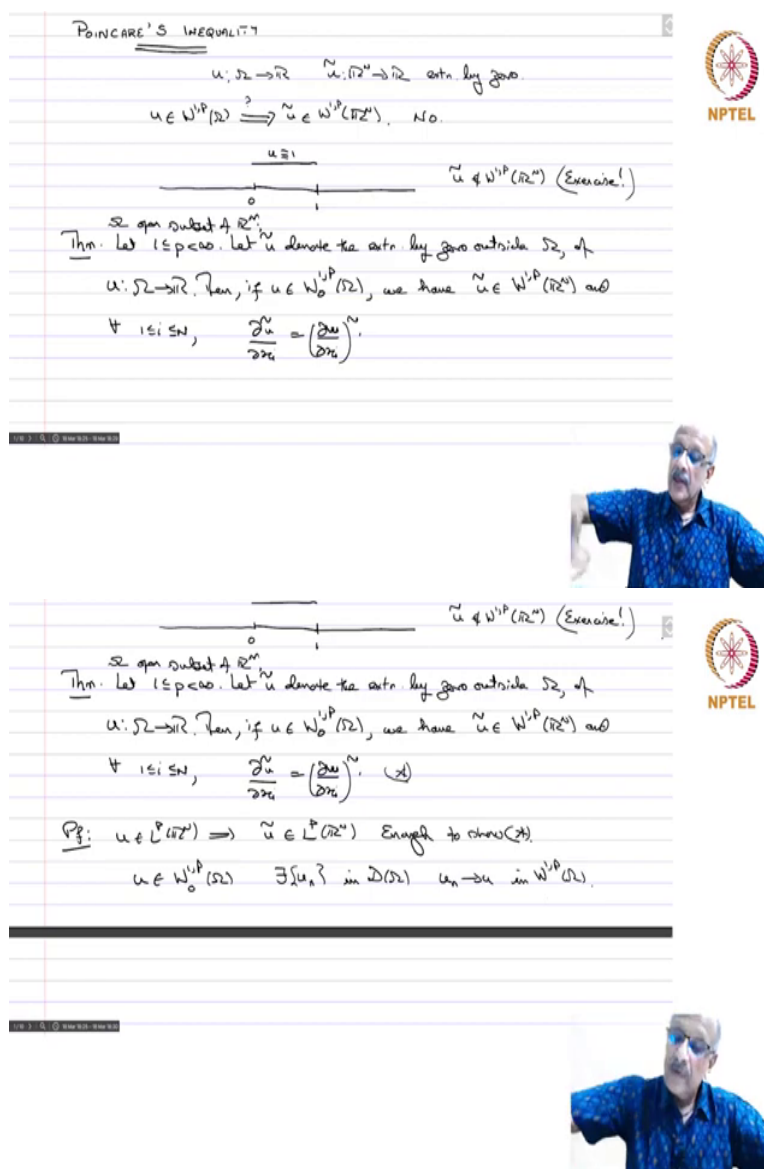 POINCARE'S INEQUALITY
u: Ω → ℝ  ũ: ℝᴺ → ℝ extn. by zero.
u ∈ W^{1,p}(Ω) ?⟹ ũ ∈ W^{1,p}(ℝᴺ). No.
u ≡ 1
ũ ∉ W^{1,p}(ℝᴺ) (Exercise!)
0 1
Ω open subset of ℝᴺ.
Thm. Let 1 ≤ p < ∞. Let ũ denote the extn. by zero outside Ω, of
u: Ω → ℝ. Then, if u ∈ W₀^{1,p}(Ω), we have ũ ∈ W^{1,p}(ℝᴺ) and
∀ 1 ≤ i ≤ N, ∂ũ/∂xᵢ = (∂u/∂xᵢ)~.
NPTEL
ũ ∉ W^{1,p}(ℝᴺ) (Exercise!)
0 1
Ω open subset of ℝᴺ.
Thm. Let 1 ≤ p < ∞. Let ũ denote the extn. by zero outside Ω, of
u: Ω → ℝ. Then, if u ∈ W₀^{1,p}(Ω), we have ũ ∈ W^{1,p}(ℝᴺ) and
∀ 1 ≤ i ≤ N, ∂ũ/∂xᵢ = (∂u/∂xᵢ)~. (*)
Pf: u ∈ Lᵖ(ℝᴺ) ⟹ ũ ∈ Lᵖ(ℝᴺ) Enough to show (*).
u ∈ W₀^{1,p}(Ω) ∃{uₙ} in D(Ω) uₙ → u in W^{1,p}(Ω).
NPTEL